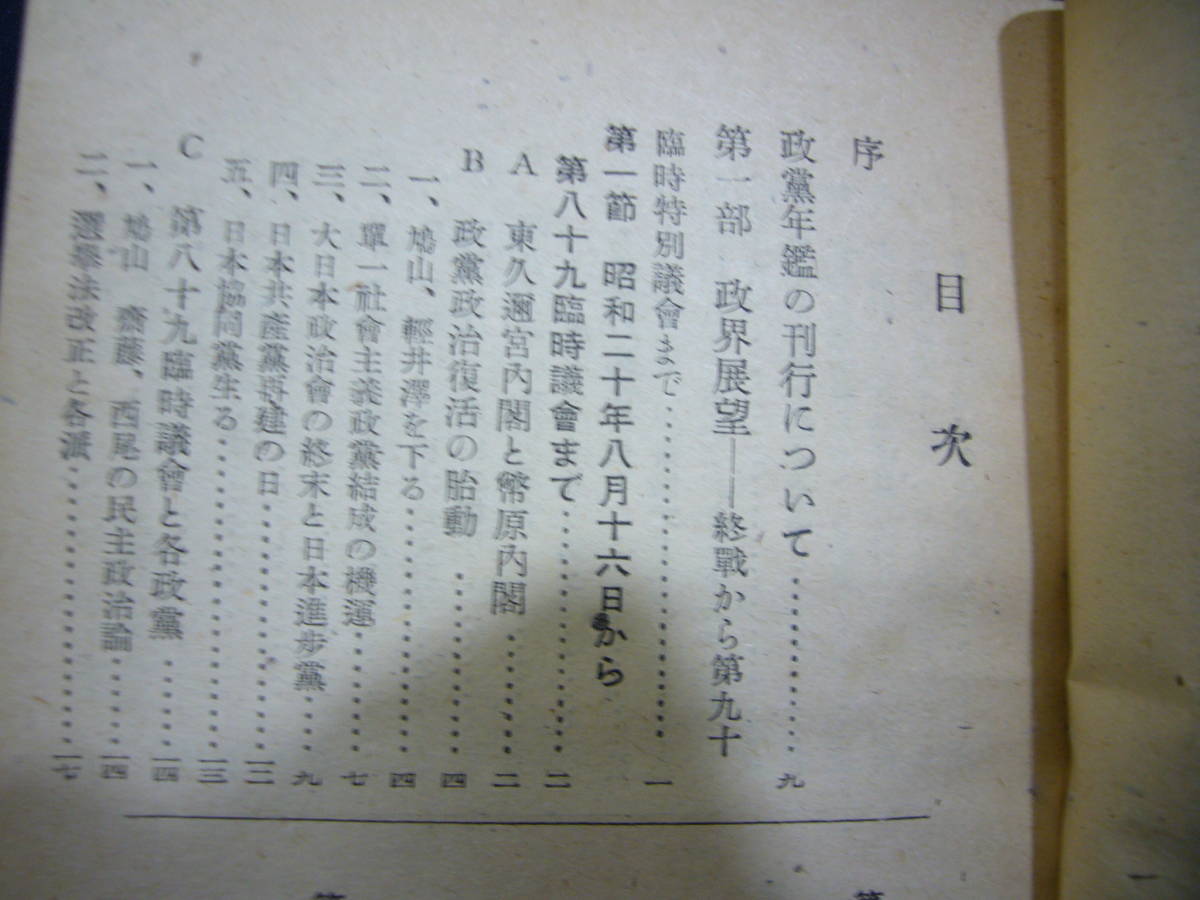 目次
序
政黨年鑑の刊行について……………九
第一部　政界展望――終戰から第九十
臨時特別議會まで……………一
第一節　昭和二十年八月十六日から
第八十九臨時議會まで……………二
A　東久邇宮內閣と幣原內閣……………二
B　政黨政治復活の胎動……………四
一、鳩山、輕井澤を下る……………四
二、單一社會主義政黨結成の機運……………七
三、大日本政治會の終末と日本進步黨……九
四、日本共產黨再建の日……………一二
五、日本協同黨生る……………一三
C　第八十九臨時議會と各政黨……………一四
一、鳩山　齋藤、西尾の民主政治論……………一四
二、選擧法改正と各派……………一七
一